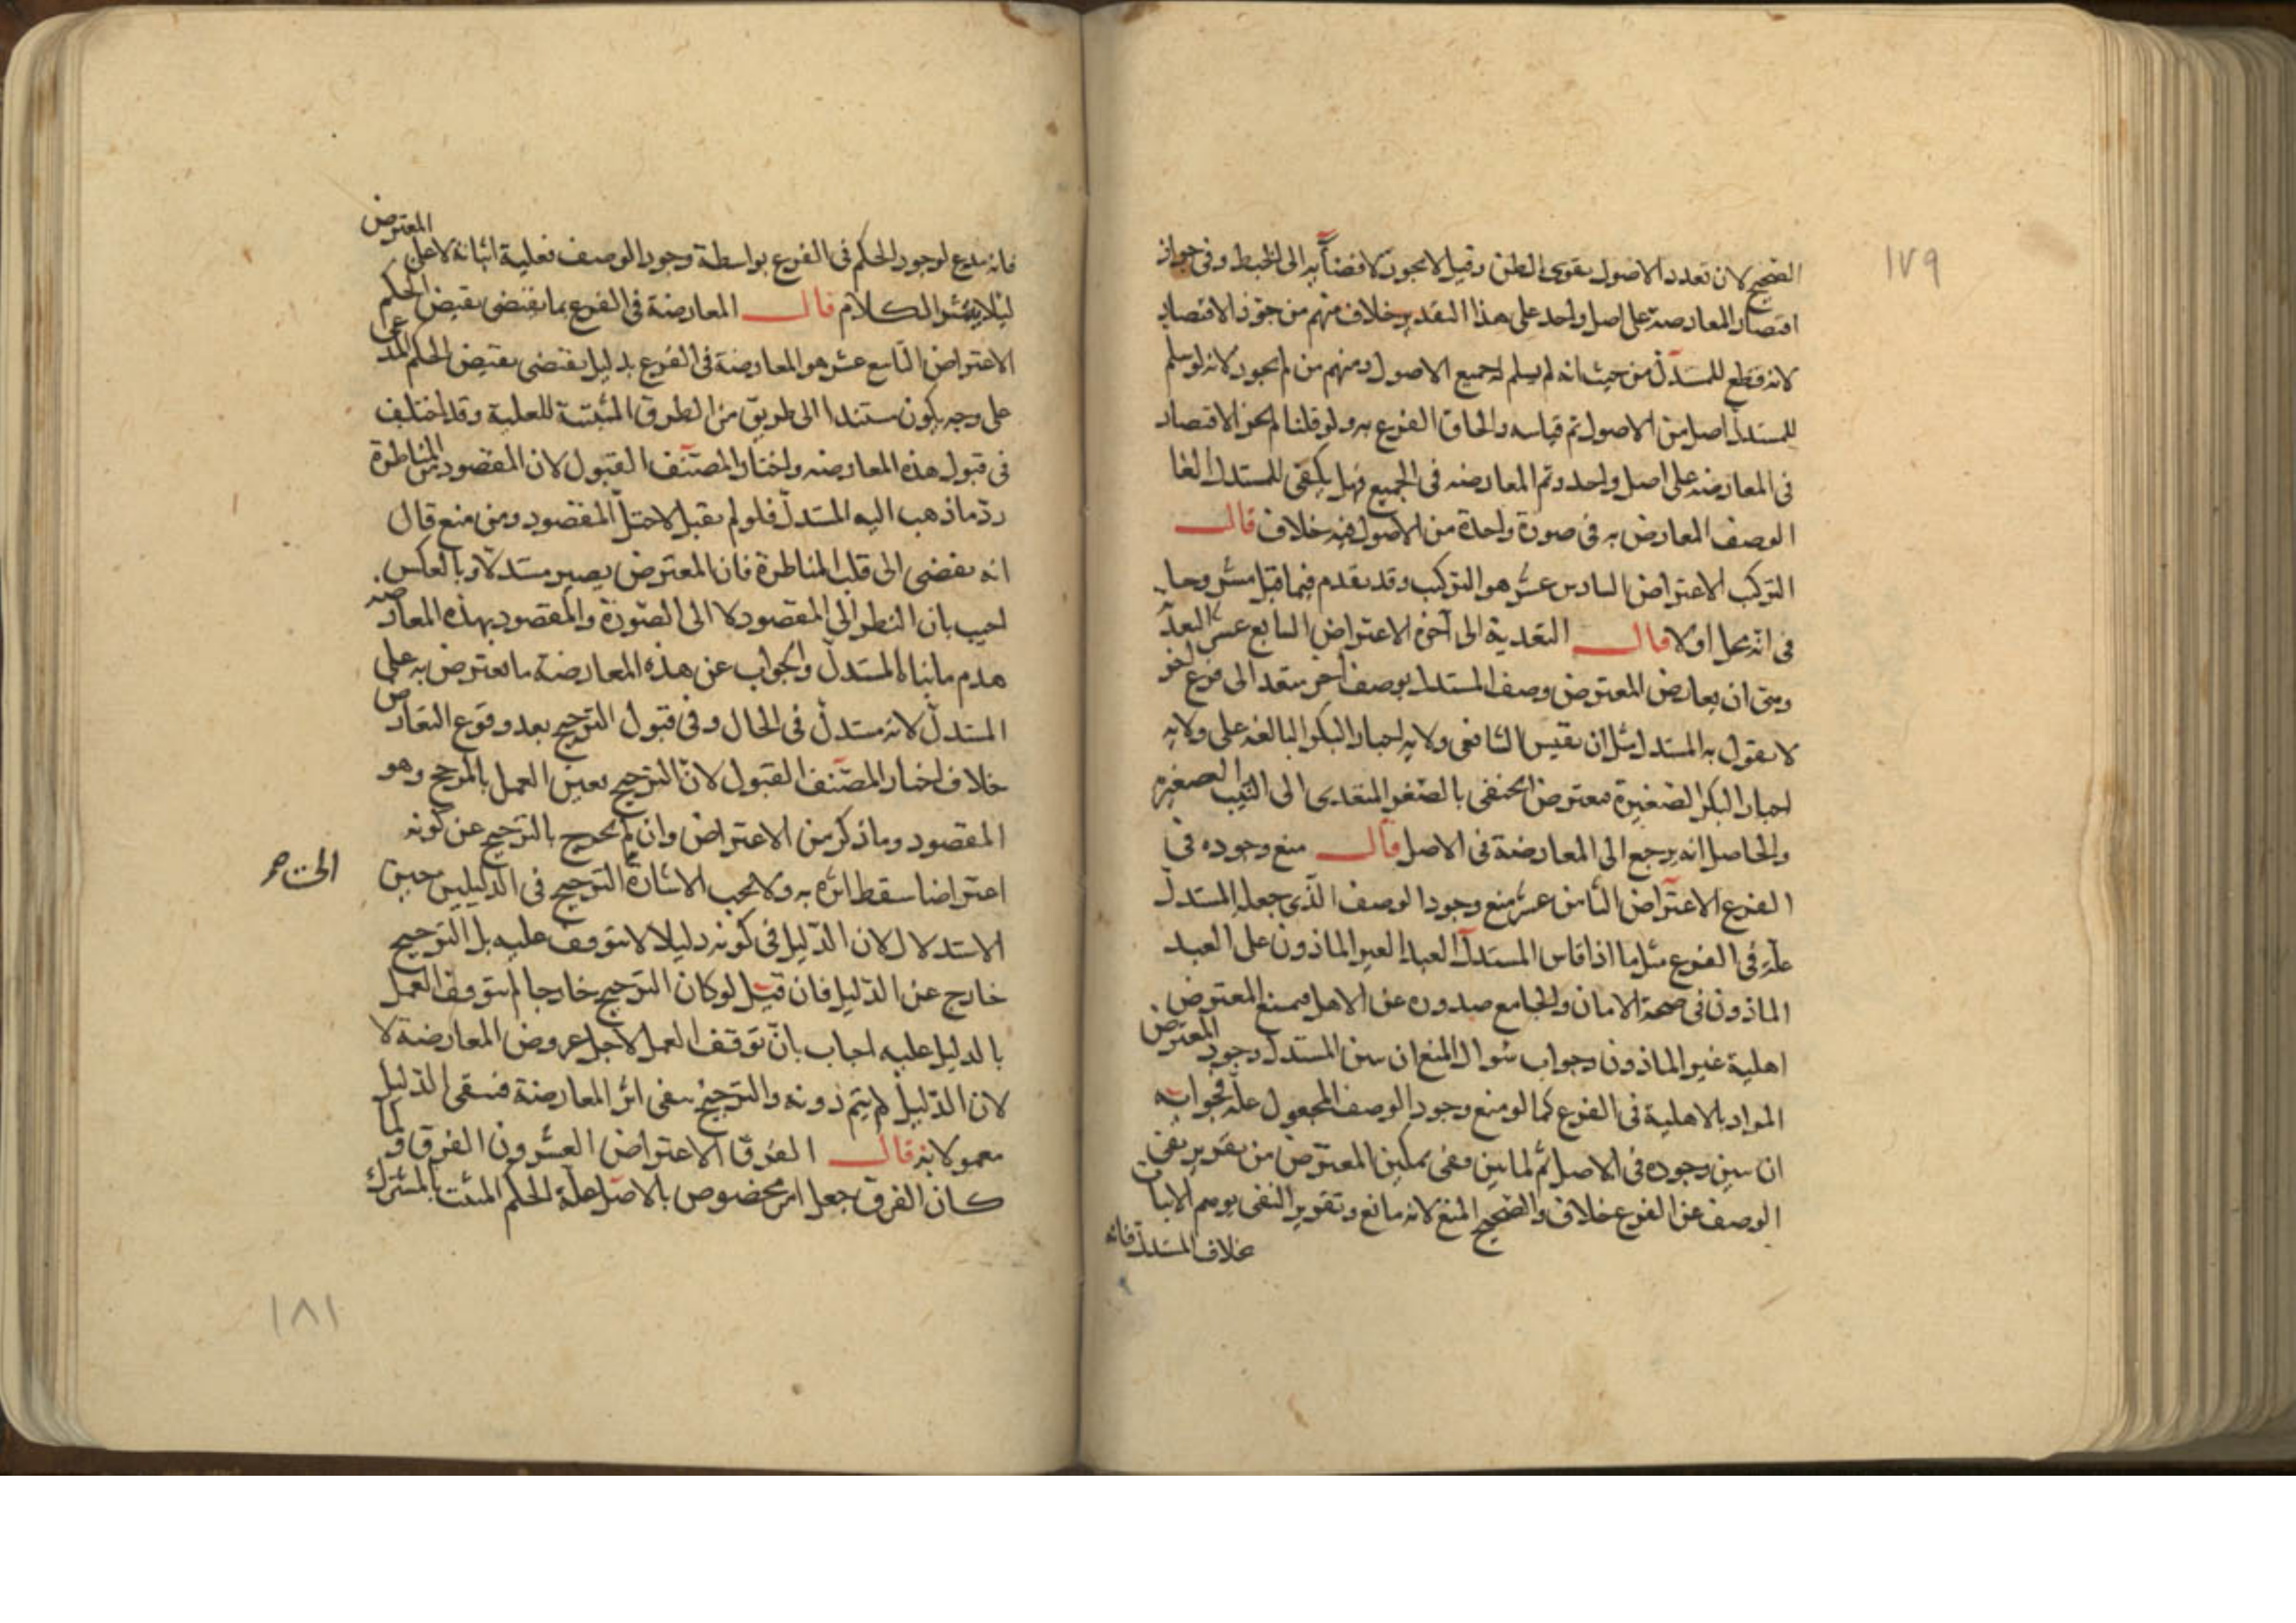 ١٧٩
الصحيح لان تعدد الاصول يقوى الظن وقيل لا يجوز لافضائه الى الخبط وفى جواز
اقتصار المعارضة على اصل واحد على هذا التقدير خلاف منهم من جوز الاقتصار
لانه قطع للمستدل من حيث انه لم يسلم له جميع الاصول ومنهم من لم يجوز لانه لو سلم
للمستدل اصل من الاصول تم قياسه والحاق الفرع به ولو قلنا لم يجز الاقتصار
فى المعارضه على اصل واحد وتم المعارضه فى الجميع فهل يكفى للمستدل الغا
الوصف المعارض به فى صورة واحدة من الاصول فيه خلاف قال
التركيب الاعتراض السادس عشر هو التركيب وقد تقدم فيما قبل مشروحا
فى انه محل اولا قال التعدية الى آخره الاعتراض السابع عشر التعد
وهى ان يعارض المعترض وصف المستدل بوصف آخر متعد الى فرع اخر
لا يقول به المستدل مثل ان يقيس الشافعى ولايه اجبار البكر البالغه على ولايه
اجبار البكر الصغيرة فيعترض الحنفى بالصغر المتعدى الى الثيب الصغيره
والحاصل انه يرجع الى المعارضة فى الاصل قال منع وجوده فى
الفرع الاعتراض الثامن عشر منع وجود الوصف الذى جعله المستدل
علة فى الفرع مثل ما اذا قاس المستدل العبد الغير الماذون على العبد
الماذون فى صحة الامان والجامع صدوره عن الاهل فيمنع المعترض
اهلية غير الماذون وجواب سوال المنع ان يبين المستدل وجود المعترض
المراد بالاهلية فى الفرع كما لو منع وجود الوصف المجعول علة فجوابه
ان يبين وجوده فى الاصل ثم لما بين وفى تمكين المعترض من تقرير نفى
الوصف عن الفرع خلاف والصحيح المنع لانه مانع وتقرير النفى يوهم الاثبات
خلاف المستدل فانه
المعترض
فانه مدع لوجود الحكم فى الفرع بواسطة وجود الوصف فعلية اثباته لا على
ليلا ينتشر الكلام قال المعارضة فى الفرع بما يقتضى نقيض الحكم
الاعتراض التاسع عشر هو المعارضة فى الفرع بدليل يقتضى نقيض الحكم المدعى
على وجه يكون مستندا الى طريق من الطرق المثبتة للعلية وقد اختلف
فى قبول هذه المعارضه واختار المصنف القبول لان المقصود من المناظرة
رد ما ذهب اليه المستدل فلو لم يقبل لاختل المقصود ومن منع قال
انه يفضى الى قلب المناظرة فان المعترض يصير مستدلا وبالعكس
اجيب بان النظر الى المقصود لا الى الصورة والمقصود بهذه المعارضه
هدم ما بناه المستدل والجواب عن هذه المعارضة ما يعترض به على
المستدل لانه مستدل فى الحال وفى قبول الترجيح بعد وقوع التعارض
خلاف اختار المصنف القبول لان الترجيح يعين العمل بالمرجح وهو
المقصود وما ذكر من الاعتراض وان لم يخرج بالترجيح عن كونه
اعتراضا سقط اثره به ولا يجب الاشارة الترجيح فى الدليلين حين
الى صح
الاستدلال لان الدليل فى كونه دليلا لا يتوقف عليه بل الترجيح
خارج عن الدليل فان قيل لو كان الترجيح خارجا لم يتوقف العمل
بالدليل عليه اجاب بان توقف العمل لاجل عروض المعارضة لا
لان الدليل لم يتم دونه والترجيح ينفى اثر المعارضة فيبقى الدليل
معمولا به قال الفرق الاعتراض العشرون الفرق ولما
كان الفرق جعل امر مخصوص بالاصل علة الحكم المثبت بالمشترك
١٨١